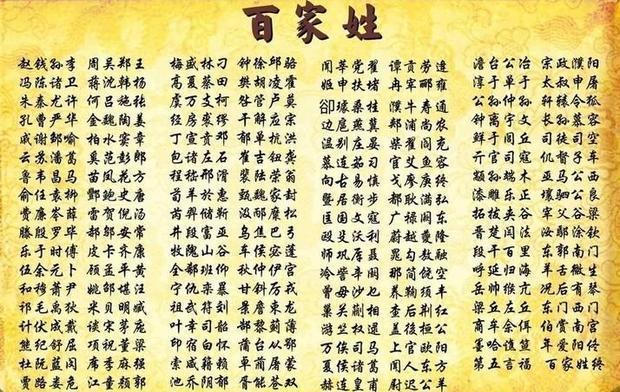 百家姓
赵钱孙李 周吴郑王
冯陈褚卫 蒋沈韩杨
朱秦尤许 何吕施张
孔曹严华 金魏陶姜
戚谢邹喻 柏水窦章
云苏潘葛 奚范彭郎
鲁韦昌马 苗凤花方
俞任袁柳 酆鲍史唐
费廉岑薛 雷贺倪汤
滕殷罗毕 郝邬安常
乐于时傅 皮卞齐康
伍余元卜 顾孟平黄
和穆萧尹 姚邵湛汪
祁毛禹狄 米贝明臧
计伏成戴 谈宋茅庞
熊纪舒屈 项祝董梁
杜阮蓝闵 席季麻强
贾路娄危 江童颜郭
梅盛林刁 钟徐邱骆
高夏蔡田 樊胡凌霍
虞万支柯 昝管卢莫
经房裘缪 干解应宗
丁宣贲邓 郁单杭洪
包诸左石 崔吉钮龚
程嵇邢滑 裴陆荣翁
荀羊於惠 甄曲家封
芮羿储靳 汲邴糜松
井段富巫 乌焦巴弓
牧隗山谷 车侯宓蓬
全郗班仰 秋仲伊宫
宁仇栾暴 甘钭厉戎
祖武符刘 景詹束龙
叶幸司韶 郜黎蓟薄
印宿白怀 蒲邰从鄂
索咸籍赖 卓蔺屠蒙
池乔阴 胥能苍双
闻莘党翟 谭贡劳逄
姬申扶堵 冉宰郦雍
郤璩桑桂 濮牛寿通
边扈燕冀 郏浦尚农
温别庄晏 柴瞿阎充
慕连茹习 宦艾鱼容
向古易慎 戈廖庾终
暨居衡步 都耿满弘
匡国文寇 广禄阙东
欧殳沃利 蔚越夔隆
师巩厍聂 晁勾敖融
冷訾辛阚 那简饶空
曾毋沙乜 养鞠须丰
巢关蒯相 查后荆红
游竺权逯 盖益桓公
万俟司马 上官欧阳
夏侯诸葛 闻人东方
赫连皇甫 尉迟公羊
澹台公冶 宗政濮阳
淳于单于 太叔申屠
公孙仲孙 轩辕令狐
钟离宇文 长孙慕容
鲜于闾丘 司徒司空
亓官司寇 仉督子车
颛孙端木 巫马公西
漆雕乐正 壤驷公良
拓跋夹谷 宰父谷梁
晋楚闫法 汝鄢涂钦
段干百里 东郭南门
呼延归海 羊舌微生
岳帅缑亢 况后有琴
梁丘左丘 东门西门
商牟佘佴 伯赏南宫
墨哈谯笪 年爱阳佟
第五言福 百家姓终